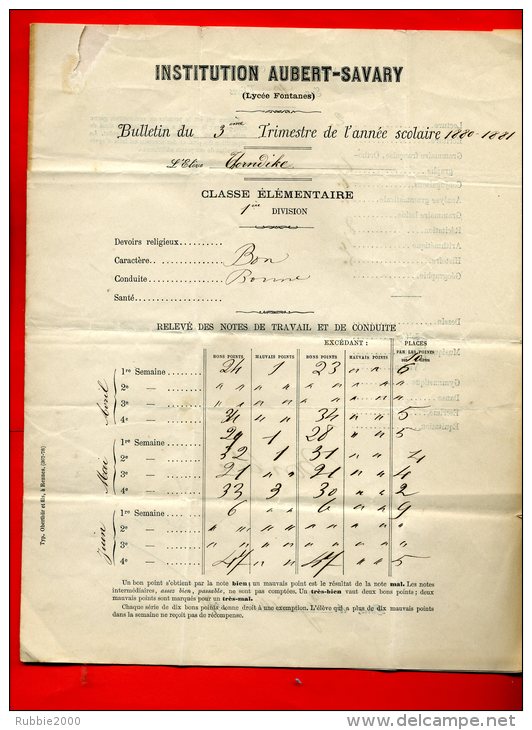 INSTITUTION AUBERT-SAVARY
(Lycée Fontanes)
Bulletin du 3ème Trimestre de l'année scolaire 1880-1881
L'Elève
CLASSE ÉLÉMENTAIRE
1ère DIVISION
Devoirs religieux
Caractère Bon
Conduite Bonne
Santé
RELEVÉ DES NOTES DE TRAVAIL ET DE CONDUITE
EXCÉDANT : PLACES
BONS POINTS MAUVAIS POINTS BONS POINTS MAUVAIS POINTS PAR LES POINTS
Avril
1re Semaine 24 1 23 " " 6
2e — " " " " " "
3e — " " " " " "
4e — 34 " 34 " " 5
Mai
1re Semaine 29 1 28 " " 5
2e — 32 1 31 " " 4
3e — 21 " 21 " " 4
4e — 33 3 30 " " 2
Juin
1re Semaine 6 " 6 " " 9
2e — " " " " " "
3e — " " " " " "
4e — 47 " 47 " " 5
Typ. Oberthür et fils, à Rennes.
Un bon point s'obtient par la note bien; un mauvais point est le résultat de la note mal. Les notes
intermédiaires, assez bien, passable, ne sont pas comptées. Un très-bien vaut deux bons points; deux
mauvais points sont marqués pour un très-mal.
Chaque série de dix bons points donne droit à une exemption. L'élève qui a plus de dix mauvais points
dans la semaine ne reçoit pas de récompense.
Rubbie2000
delcampe.net